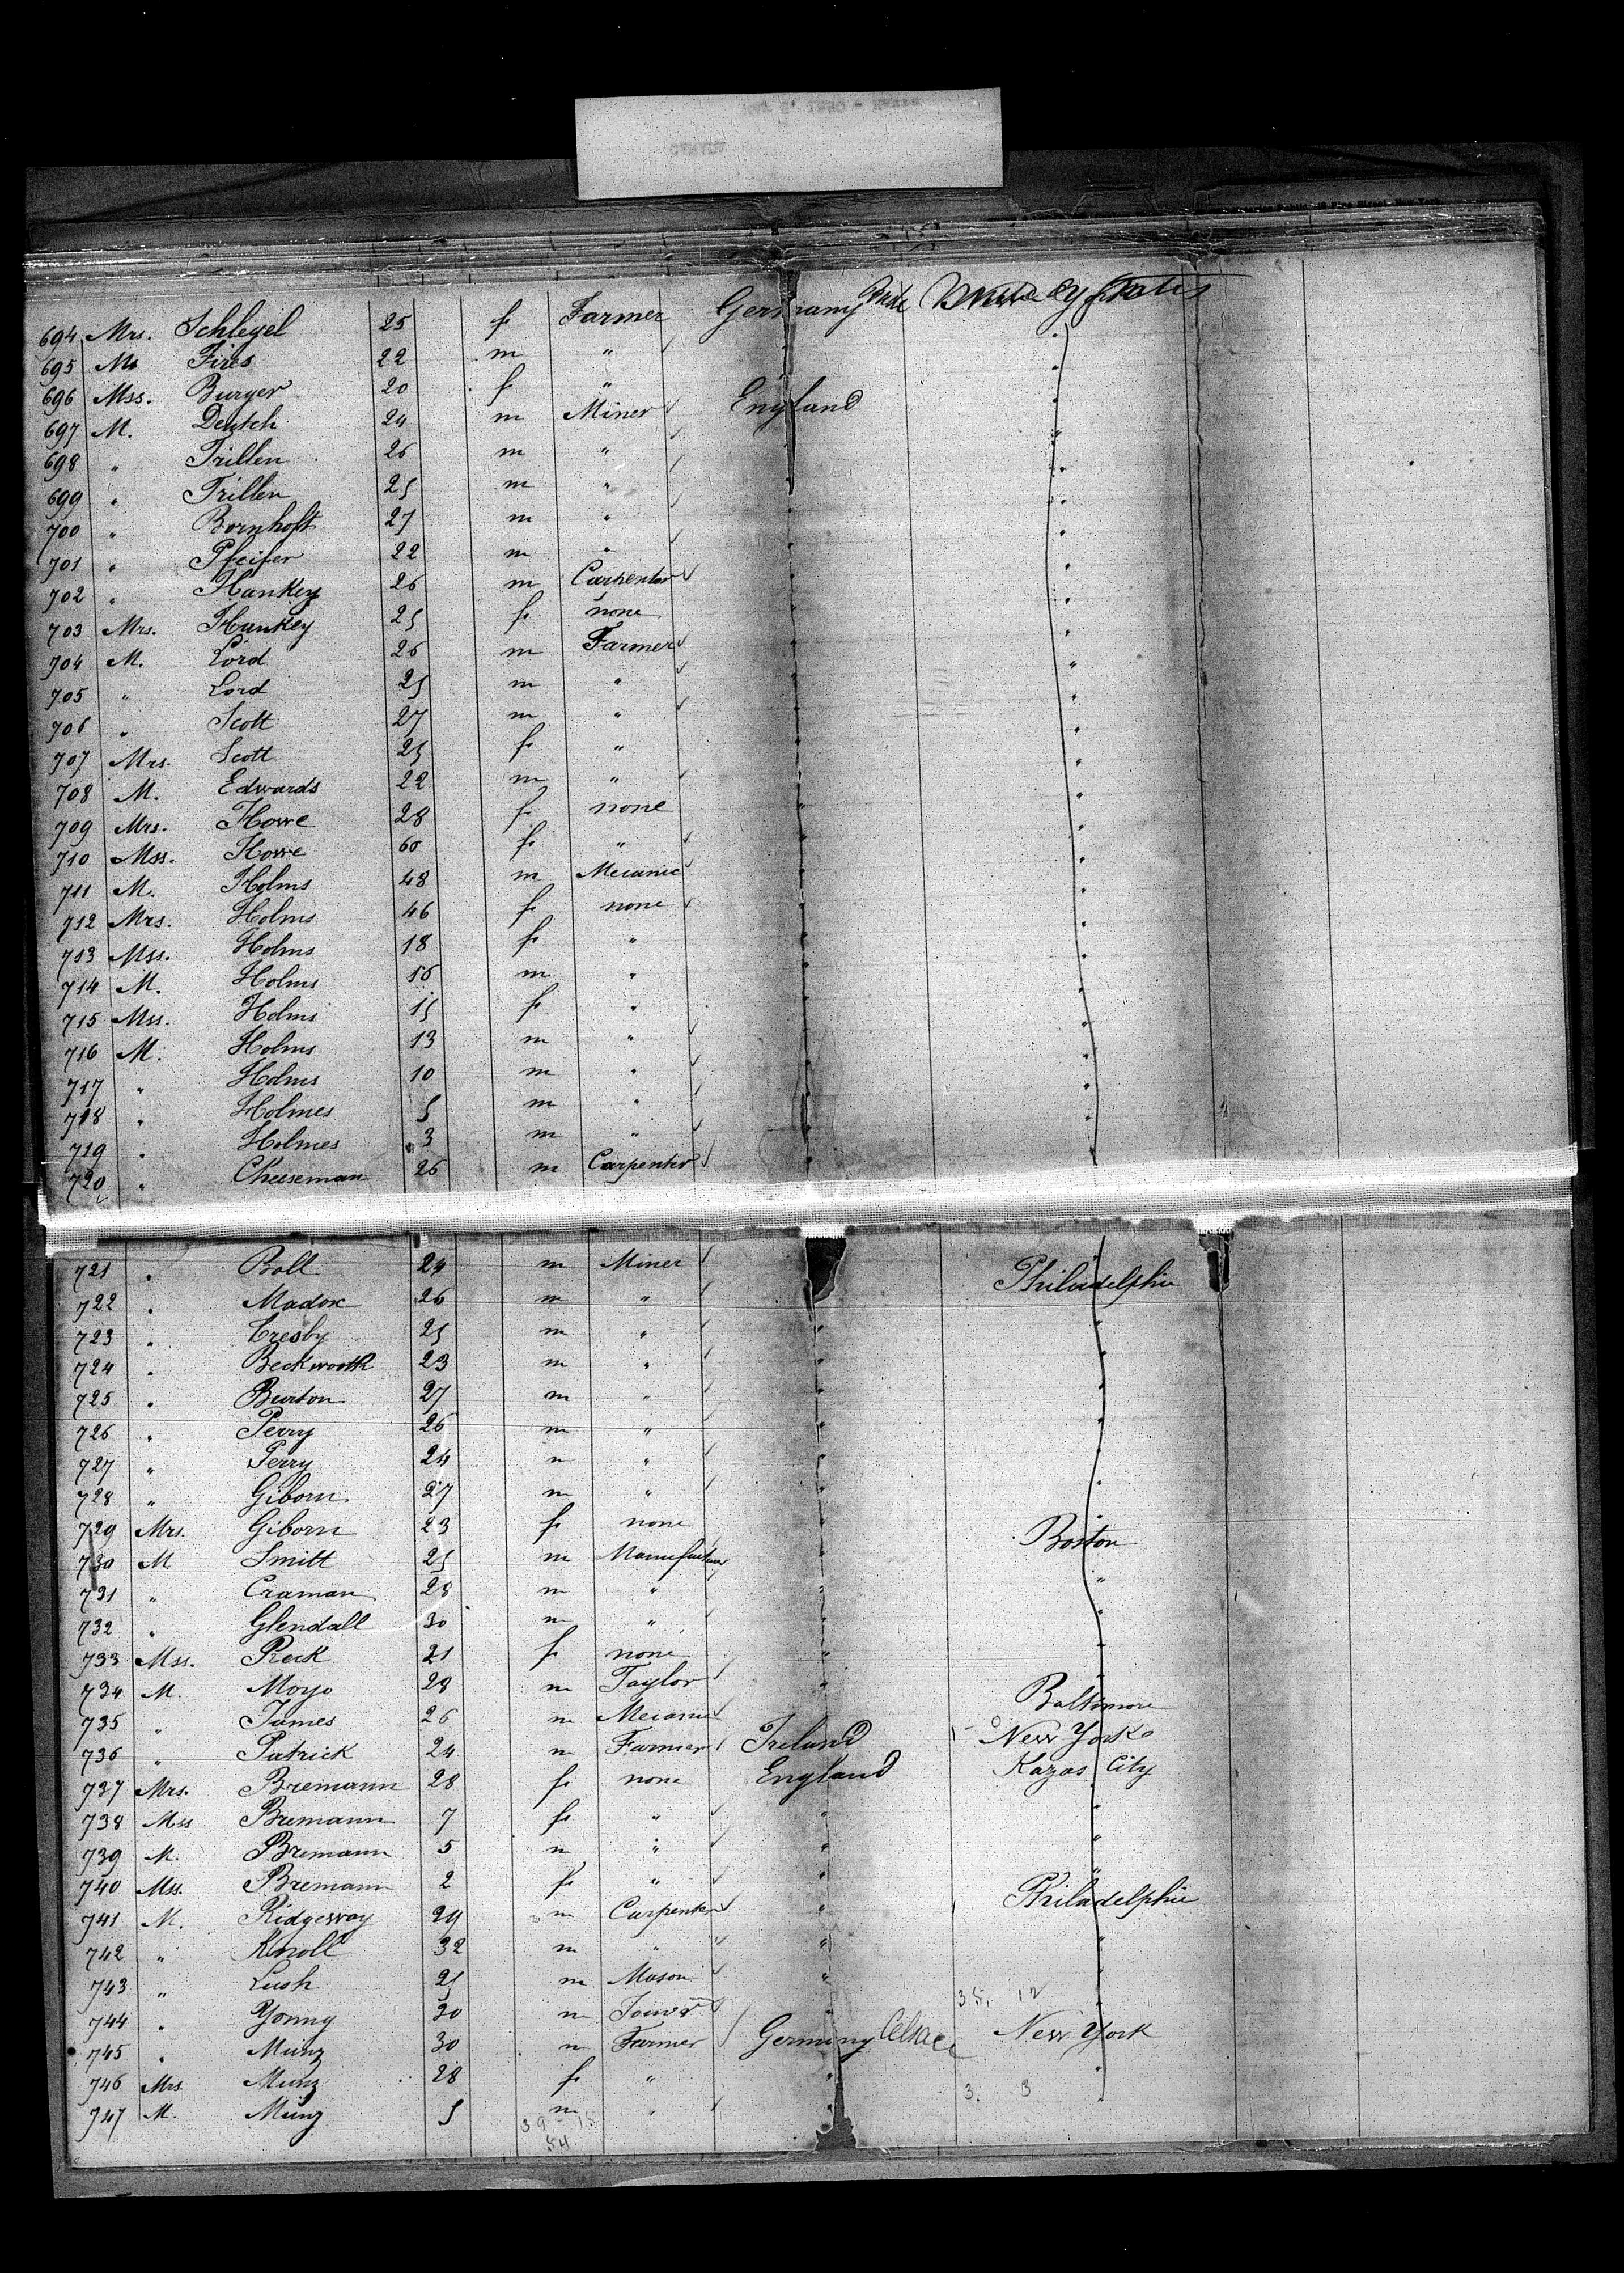 694 Mrs. Schlegel 25 f. Farmer Germany United States
695 M. Fires 22 m "
696 Mss. Burger 20 f. "
697 M. Deutch 24 m Miner England "
698 " Trillen 26 m " "
699 " Trillen 25 m " "
700 " Bornhoft 27 m " "
701 " Pfeifer 22 m " "
702 " Hankey 26 m Carpenter " "
703 Mrs. Hankey 25 f. none " "
704 M. Lord 26 m Farmer " "
705 " Lord 25 m " " "
706 " Scott 27 m " " "
707 Mrs. Scott 25 f. " " "
708 M. Edwards 22 m " " "
709 Mrs. Howe 28 f. none " "
710 Mss. Howe 60 f. " " "
711 M. Holms 48 m Mecanic " "
712 Mrs. Holms 46 f. none " "
713 Mss. Holms 18 f. " " "
714 M. Holms 16 m " " "
715 Mss. Holms 15 f. " " "
716 M. Holms 13 m " " "
717 " Holms 10 m " " "
718 " Holmes 5 m " " "
719 " Holmes 3 m " " "
720 " Cheeseman 26 m Carpenter " "
721 " Boll 24 m Miner "
722 " Madox 26 m " " Philadelphie
723 " Cresby 25 m " " "
724 " Beckworth 23 m " " "
725 " Burton 27 m " " "
726 " Perry 26 m " " "
727 " Perry 24 m " " "
728 " Giborn 27 m " " "
729 Mrs. Giborn 23 f. none " "
730 M. Smitt 25 m " Boston
731 " Craman 28 m " " "
732 " Glendall 30 m " " "
733 Mss. Peck 21 f. none " "
734 M. Moyo 28 m Taylor " "
735 " James 26 m Mecanic Baltimore
736 " Patrick 24 m Farmer Ireland New York
737 Mrs. Bremann 28 f. none England Kazas City
738 Mss Bremann 7 f. " " "
739 M. Bremann 5 m " " "
740 Mss. Bremann 2 f. " " "
741 M. Ridgeway 29 m Carpenter " Philadelphie
742 " Knoll 32 m " " "
743 " Lush 25 m Mason " "
744 " Yonng 30 m "
745 " Munz 30 m Farmer Germany New York
746 Mrs Munz 28 f. " " "
747 M. Munz 5 m " "